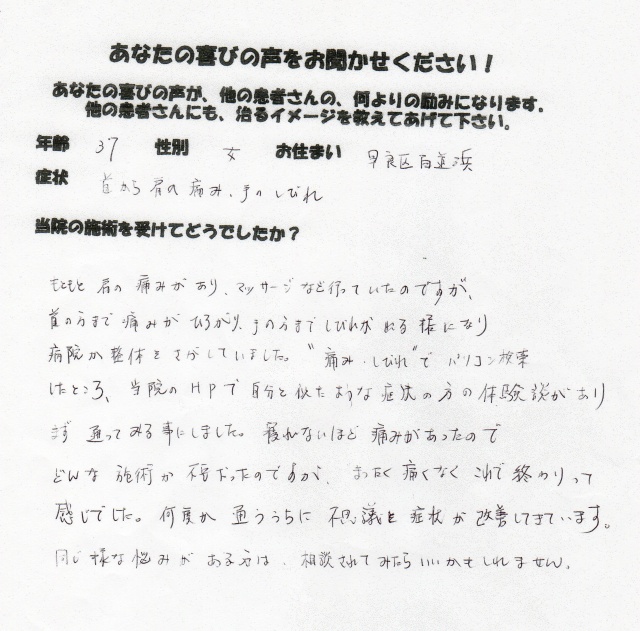 あなたの喜びの声をお聞かせください！
あなたの喜びの声が、他の患者さんの、何よりの励みになります．
他の患者さんにも、治るイメージを教えてあげて下さい。
年齢 37 性別 女 お住まい 早良区百道浜
症状 首から肩の痛み、手のしびれ
当院の施術を受けてどうでしたか？
もともと肩の痛みがあり、マッサージなど行っていたのですが、
首の方まで痛みがひろがり、手の方までしびれが出る様になり
病院か整体をさがしていました。"痛み・しびれ"でパソコン検索
したところ、当院のHPで自分と似たような症状の方の体験談があり
まず通ってみる事にしました。寝れないほど痛みがあったので
どんな施術か不安だったのですが、まったく痛くなくこれで終わりって
感じでした。何度か通ううちに不思議と症状が改善してきています。
同じ様な悩みがある方は、相談されてみたらいいかもしれません。